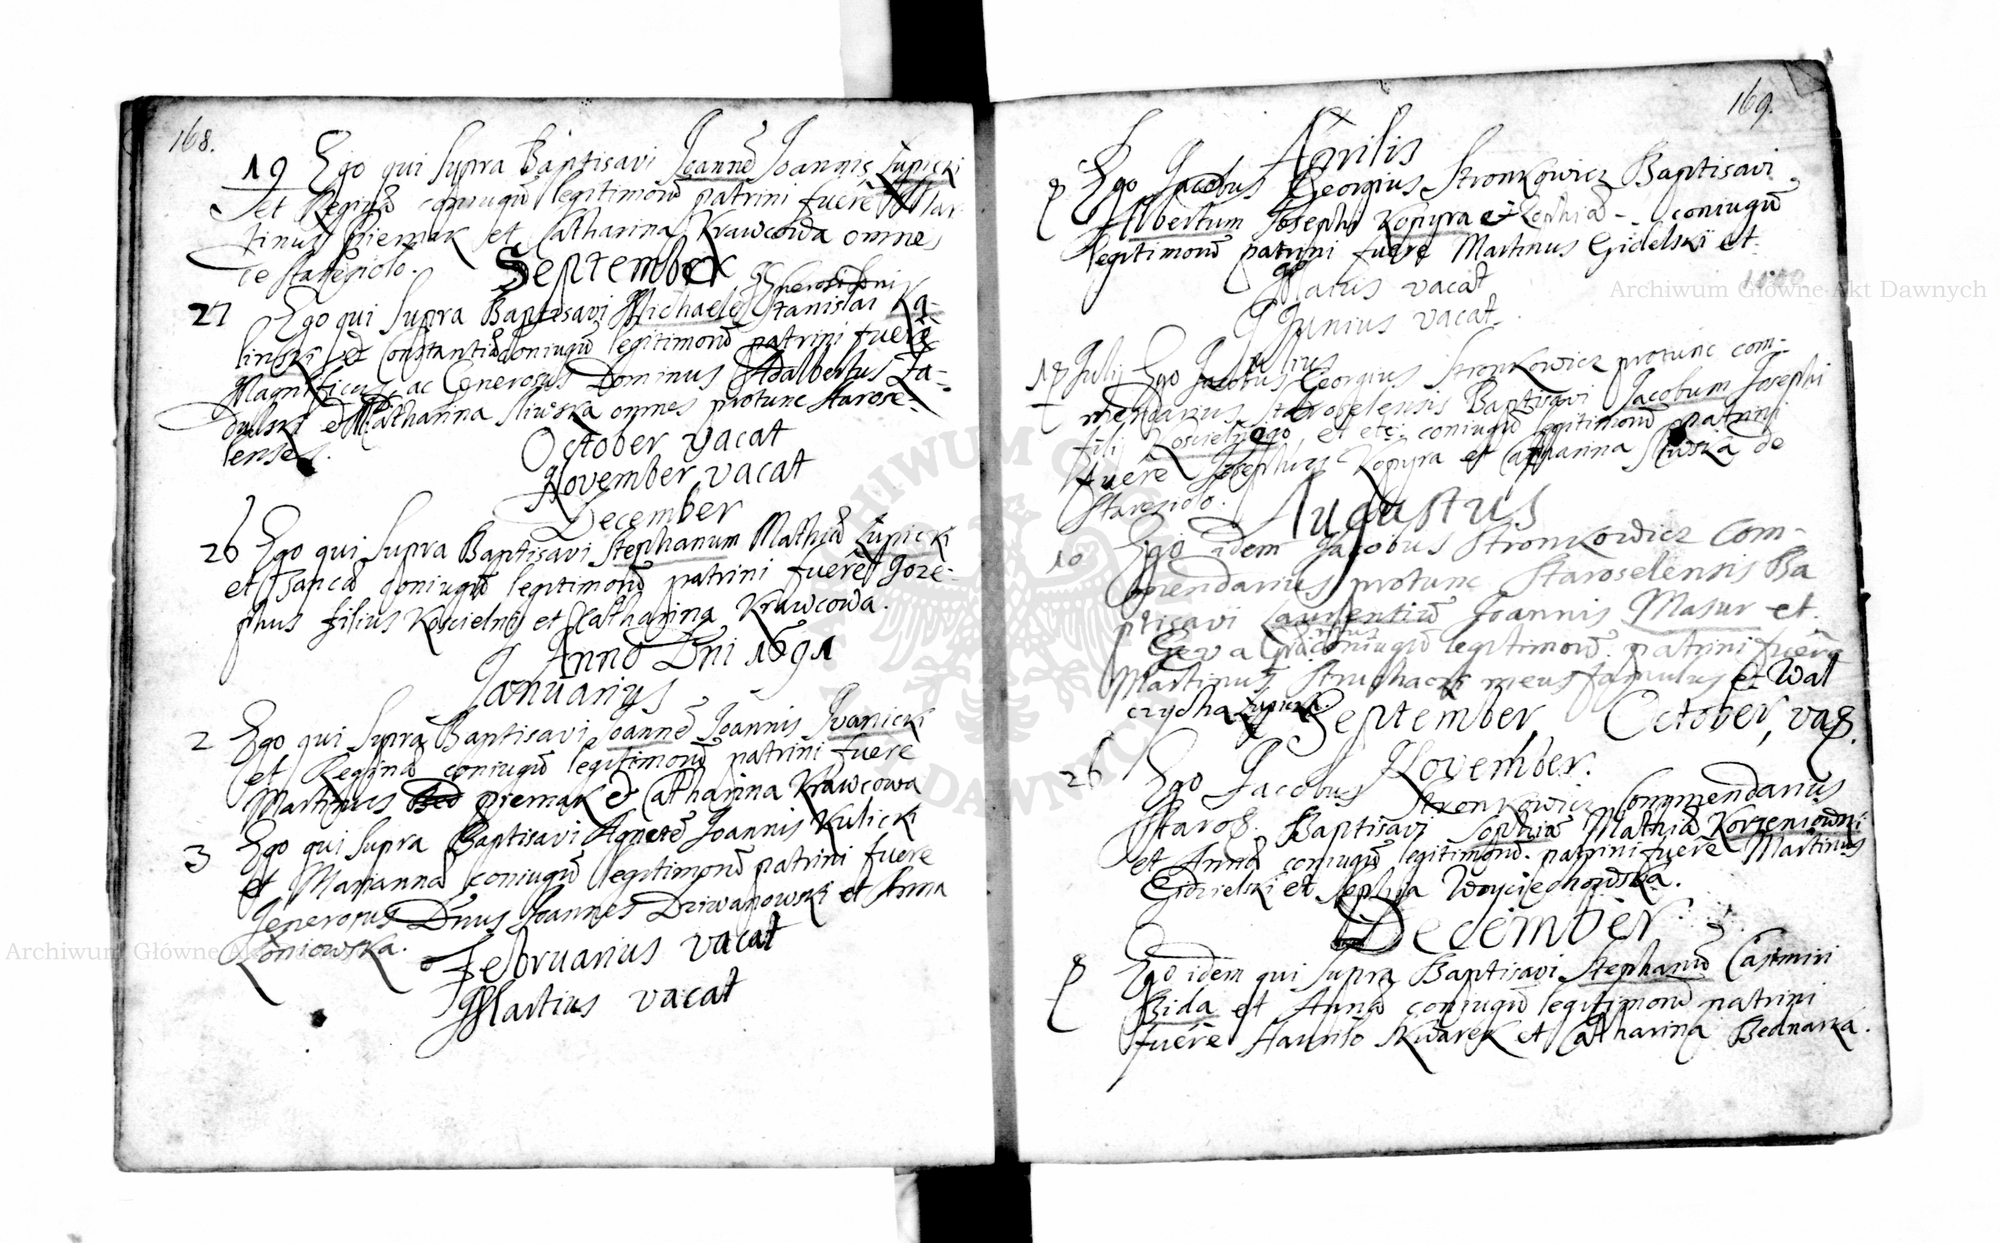 168.
19 Ego qui supra Baptisavi Joannē Joannis Łupicki
et Reginā coniugū legitimorū patrini fuerē Mar
tinus Piemak et Catharina Krawcowa omnes
de Staresiolo.
September
Generosi Dni
27 Ego qui supra Baptisavi Michaelē Stanislai Ka-
linski et Constantiā coniugū legitimorū patrini fuerē
Magnificus ac Generosus Dominus Adalbertus Za-
et Catharina Sliwska omnes protunc Starose-
lenses.
October vacat
November vacat
December
26 Ego qui supra Baptisavi Stephanum Mathiā Łupicki
et coniugū legitimorū patrini fuerē Joze-
phus filius Koscielny et Catharina Krawcowa.
Anno Dni 1691
Januarius
2 Ego qui supra Baptisavi Joannē Joannis Iwanicki
et Reginā coniugū legitimorū patrini fuerē
Martinus piemak et Catharina Krawcowa
3 Ego qui supra Baptisavi Agnetē Joannis Kulicki
et Mariannā coniugū legitimorū patrini fuere
Generosus Dnus Joannes Dziwanowski et Anna
Łoniowska.
Februarius vacat
Martius vacat
169.
Aprilis
8 Ego Jacobus Georgius Stronkowicz Baptisavi
Albertum Josephi Kopyra et Zophiā - coniugū
legitimorū patrini fuerē Martinus Gidelski et
Maius vacat
Junius vacat.
Julius
18 Julij Ego Jacobus Georgius Stronkowicz protunc com-
mendarius Staroselensis Baptisavi Jacobum Josephi
filij Koscielnego, et etc: coniugū legitimorū patrini
fuerē Josephus Kopyra et Catharina Sliwska de
Staresiolo.
Augustus
10 Ego idem Jacobus Stronkowicz Com-
mendarius protunc Staroselensis Ba
ptisavi Laurentiū Joannis Masur et
Ewa coniugū legitimorū. patrini fuerē
Martinus meus famulus et Wal
Łupicka.
September, October, vac̄.
November.
26 Ego Jacobus Stronkowicz Commendarius
Staros. Baptisavi Sophiā Mathiā Korzeniowski
et Annā coniugū legitimorū. patrini fuerē Martinus
Gidzielski et Sophia Woyciechowska.
December
8 Ego idem qui supra Baptisavi Stephanū Casimiri
Bida et Annā coniugū legitimorū patrini
fuerē Skwarek et Catharina Bednarka.
Archiwum Główne Akt Dawnych
Archiwum Główne Akt Dawnych